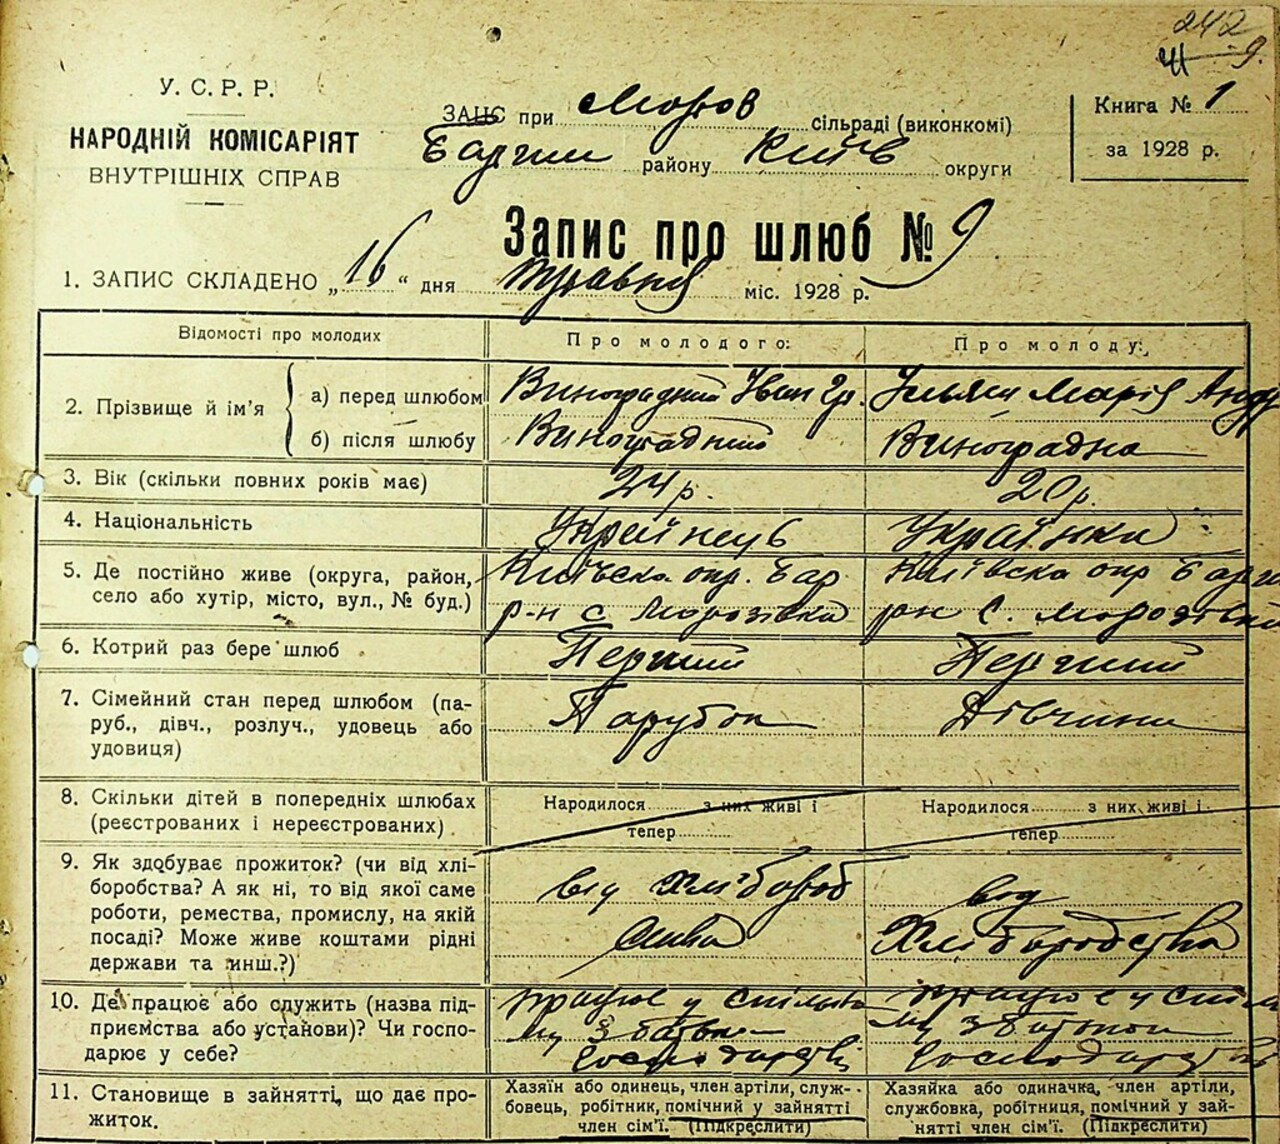 242
9.
У. С. Р. Р.
НАРОДНІЙ КОМІСАРІЯТ
ВНУТРІШНІХ СПРАВ
ЗАГС при Мороз сільраді (виконкомі)
району Київ округи
Книга № 1
за 1928 р.
Запис про шлюб № 9
1. ЗАПИС СКЛАДЕНО „16“ дня травня міс. 1928 р.
Відомості про молодих
Про молодого:
Про молоду:
2. Прізвище й ім’я
а) перед шлюбом
Виноградний Іван Гр.
Марія Андр
б) після шлюбу
Виноградний
Виноградна
3. Вік (скільки повних років має)
24 р.
20 р.
4. Національність
Українець
Українка
5. Де постійно живе (округа, район,
село або хутір, місто, вул., № буд.)
Київська окр. Бар
р-н с. Морозівка
Київска окр Бари
рн С. Морозівка
6. Котрий раз бере шлюб
Перший
Перший
7. Сімейний стан перед шлюбом (па-
руб., дівч., розлуч., удовець або
удовиця)
Парубок
Дівчина
8. Скільки дітей в попередніх шлюбах
(реєстрованих і нереєстрованих)
Народилося з них живі і
тепер
Народилося з них живі і
тепер
9. Як здобуває прожиток? (чи від хлі-
боробства? А як ні, то від якої саме
роботи, ремества, промислу, на якій
посаді? Може живе коштами рідні
держави та инш.?)
від Хлібороб
ства
від
Хліборобства
10. Де працює або служить (назва під-
приємства або установи)? Чи госпо-
дарює у себе?
працює у спільно
му з батьком
Господарстві
працює у спіль
му з батьком
Господарстві
11. Становище в зайнятті, що дає про-
житок.
Хазяїн або одинець, член артіли, служ-
бовець, робітник, помічний у зайнятті
член сім’ї. (Підкреслити)
Хазяйка або одиначка, член артіли,
службовка, робітниця, помічний у зай-
нятті член сім’ї. (Підкреслити)